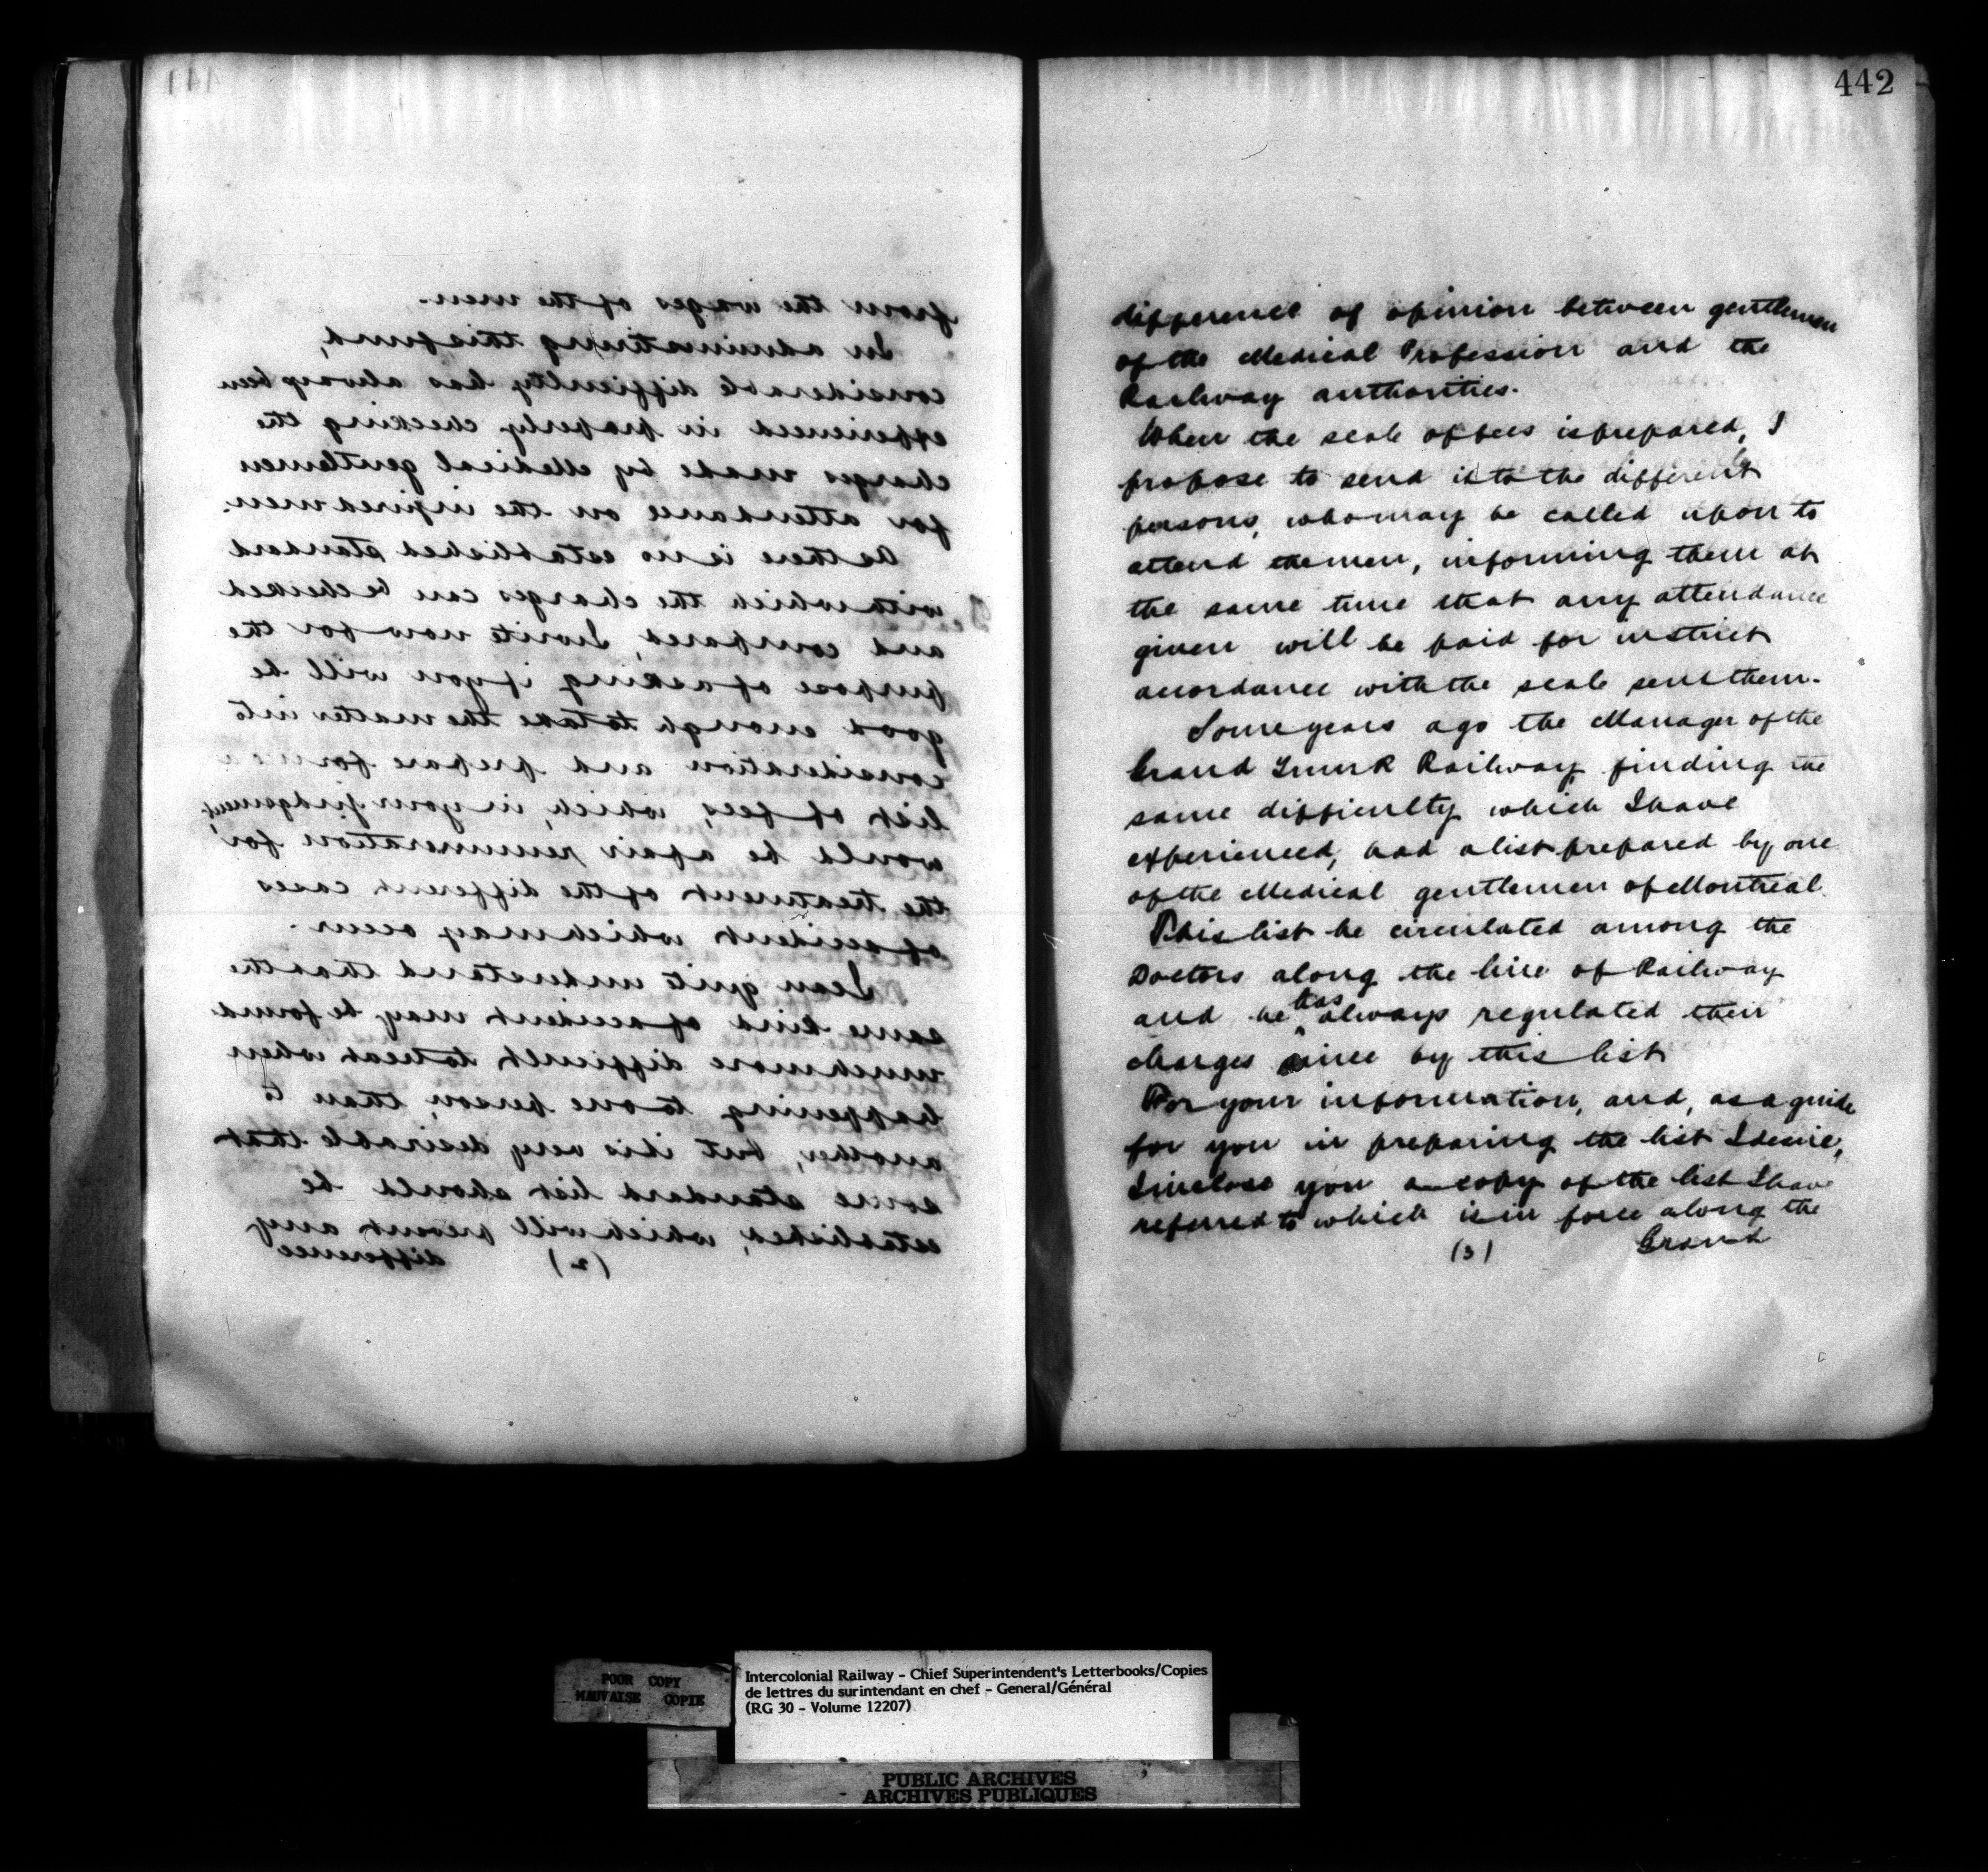 441
from the wages of the men.
In administering this fund,
considerable difficulty has always been
experienced in properly checking the
charges made by Medical gentlemen
for attendance on the injured men.
As there is no established standard
with which the charges can be checked
and compared, I write now for the
purpose of asking if you will be
good enough to take the matter into
consideration and prepare for me a
list of fees, which, in your judgement,
would be a fair renumeration for
the treatment of the different cases
of accident which may occur.
I can quite understand that the
same kind of accident may be found
much more difficult to treat when
happening to one person, than to
another, but it is very desirable that
some standard list should be
established, which will prevent any
(2) difference
442
difference of opinion between gentlemen
of the Medical Profession and the
Railway authorities.
When the scale of fees is prepared, I
propose to send it to the different
persons, who may be called upon to
attend the men, informing them at
the same time that any attendance
given will be paid for in strict
accordance with the scale sent them.
Some years ago the Manager of the
Grand Trunk Railway, finding the
same difficulty which I have
experienced, had a list prepared by one
of the Medical gentlemen of Montreal.
This list he circulated among the
Doctors along the line of Railway
and he has always regulated their
charges since by this list
For your information, and, as a guide
for you in preparing the list I desire,
I inclose you a copy of the list I have
referred to which is in force along the
(3) Grand
POOR COPY
MAUVAISE COPIE
Intercolonial Railway - Chief Superintendent's Letterbooks/Copies
de lettres du surintendant en chef - General/Général
(RG 30 - Volume 12207)
PUBLIC ARCHIVES
ARCHIVES PUBLIQUES